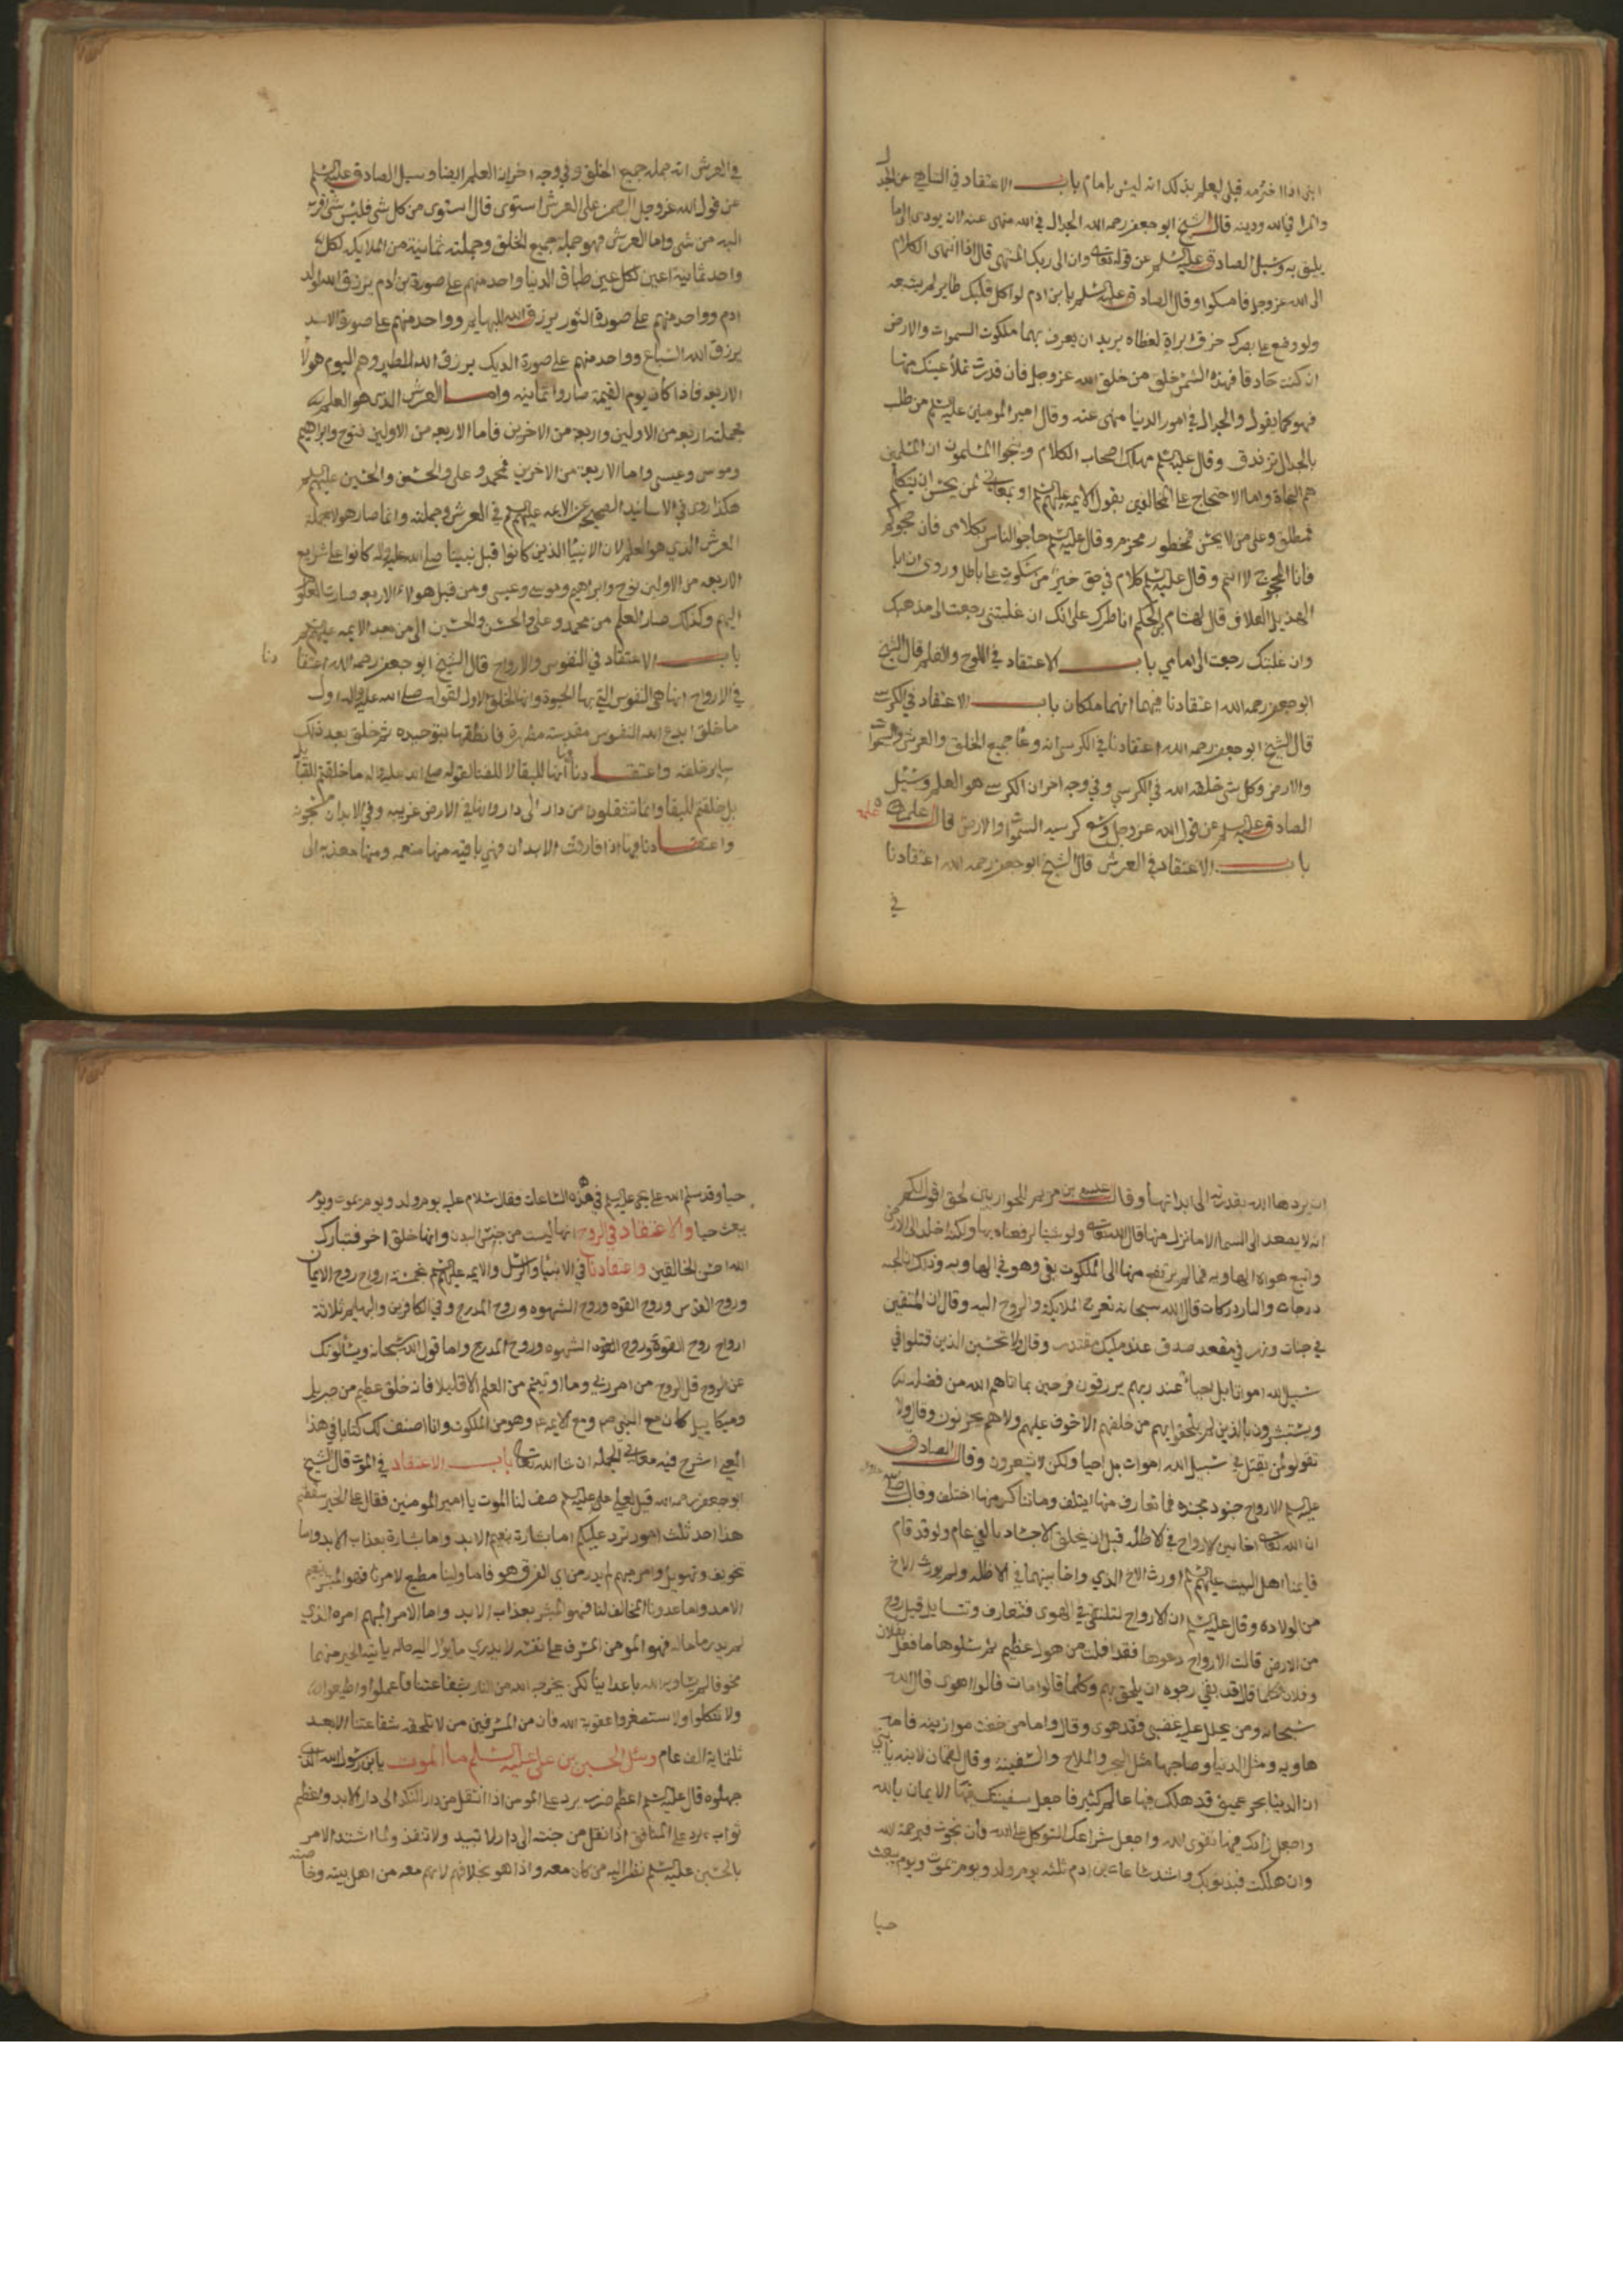 ابنى اذا اخترمه قبلى ليعلم بذلك انه ليس بامام باب الاعتقاد في التناهي عن الجدل
والمرا في الله ودينه قال الشيخ ابو جعفر رحمه الله الجدال في الله منهى عنه لانه يودى الى ما لا
يليق به وسئل الصادق عليه السلم عن قوله تعالى وان الى ربك المنتهى قال اذا انتهى الكلام
الى الله عز وجل فامسكوا وقال الصادق عليه السلم يا بن ادم لو اكل قلبك طاير لم يشبعه
ولو وضع على بصرك خرق ابرة لغطاه يريد ان يعرف بهما ملكوت السموات والارض
ان كنت صادقا فهذه الشمس خلق من خلق الله عز وجل فان قدرت تملأ عينك منها
فهو كما يقول والجدال في امور الدنيا منهى عنه وقال امير المومنين عليه السلم من طلب
بالجدال تزندق وقال عليه السلم يهلك اصحاب الكلام وينجوا المسلمون ان المسلمين
هم النجاة واما الاحتجاج على المخالفين بقول الايمه عليهم السلم او بمعانى لمن يحسن ان يتكلم
فمطلق وعلى من لا يحسن فمحظور محرم وقال عليه السلم حاجوا الناس بكلامى فان حجوكم
فانا المحجوج لا انتم وقال عليه السلم كلام في حق خير من سكوت على باطل وروى ان ابا
الهذيل العلاف قال لهشام بن الحكم اناظرك على انك ان غلبتنى رجعت الى مذهبك
وان غلبتك رجعت الى امامى باب الاعتقاد في اللوح والقلم قال الشيخ
ابو جعفر رحمه الله اعتقادنا فيهما انهما ملكان باب الاعتقاد في الكرسي
قال الشيخ ابو جعفر رحمه الله اعتقادنا في الكرسى انه وعا جميع الخلق والعرش والسموات
والارض وكل شى خلقه الله في الكرسي وفي وجه اخر ان الكرسي هو العلم وسئل
الصادق عليه السلم عن قول الله عز وجل وسع كرسيه السموات والارض قال علمه
باب الاعتقاد في العرش قال الشيخ ابو جعفر رحمه الله اعتقادنا
في
في العرش انه جملة جميع الخلق وفي وجه اخر انه العلم ايضا وسيل الصادق عليه السلم
عن قول الله عز وجل الرحمن على العرش استوى قال استوى من كل شى فليس شى اقرب
اليه من شى واما العرش فهو جملة جميع الخلق وحملته ثمانية من الملايكه لكل
واحد ثمانية اعين كل عين طباق الدنيا واحد منهم على صورة بن ادم يرزق الله لولد
ادم وواحد منهم على صورة الثور يرزق الله للبهايم وواحد منهم على صورة الاسد
يرزق الله السباع وواحد منهم على صورة الديك يرزق الله للطير وهم اليوم هولا
الاربعه فاذا كان يوم القيمة صاروا ثمانيه واما العرش الذى هو العلم
فحملته اربعه من الاولين واربعه من الاخرين فاما الاربعه من الاولين فنوح وابراهيم
وموسى وعيسى واما الاربعة من الاخرين فمحمد وعلى والحسن والحسين عليهم السلم
هكذا روى في الاسانيد الصحيحه عن الايمه عليهم السلم في العرش وحملته وانما صار هولا حملة
العرش الذي هو العلم لان الانبيا الذين كانوا قبل نبينا صلى الله عليه واله كانوا على شرايع
الاربعه من الاولين نوح وابراهيم وموسى وعيسى ومن قبل هولاء الاربعه صارت العلوم
اليهم وكذلك صار العلم من محمد وعلى والحسن والحسين الى من بعد الايمه عليهم السلم
باب الاعتقاد في النفوس والارواح قال الشيخ ابو جعفر رحمه الله اعتقا دنا
في الارواح انها هى النفوس التي بها الحيوة وانها الخلق الاول لقوله صلى الله عليه واله اول
ما خلق ابدع الله النفوس مقدسة مطهرة فانطقها بتوحيده ثم خلق بعد ذلك
ساير خلقه واعتقادنا انها للبقا لا للفنا لقوله صلى الله عليه واله ما خلقتم للفنا
بل خلقتم للبقا وانما تنتقلون من دار الى دار وانها في الارض غريبه وفي الابدان مسجونة
واعتقادنا فيها اذا فارقت الابدان فهى باقيه منها منعمه ومنها معذبه الى
ان يردها الله بقدرته الى ابدانها وقال عيسى بن مريم للحواريين لحق اقول لكم
انه لا يصعد الى السما الا ما نزل منها قال الله تعالى ولو شينا لرفعناه بها ولكنه اخلد الى الارض
واتبع هواه الهاويه فما لم يرتفع منها الى الملكوت بقى وهو في الهاويه وذلك ان الجنه
درجات والنار دركات قال الله سبحانه تعرج الملايكة والروح اليه وقال ان المتقين
في جنات ونهر في مقعد صدق عند مليك مقتدر وقال ولا تحسبن الذين قتلوا في
سبيل الله امواتا بل احيا عند ربهم يرزقون فرحين بما اتاهم الله من فضله
ويستبشرون بالذين لم يلحقوا بهم من خلفهم الا خوف عليهم ولا هم يحزنون وقال ولا
تقولوا لمن يقتل في سبيل الله اموات بل احيا ولكن لا تشعرون وقال الصادق
عليه السلم الارواح جنود مجنده فما تعارف منها ايتلف وما تناكر منها اختلف وقال
ان الله تعالى اخا بين الارواح في الاظله قبل ان يخلق الاجساد بالفي عام ولو قد قام
قايمنا اهل البيت عليهم السلم اورث الاخ الذي واخا بينهما في الاظله ولم يورث الاخ
من الولاده وقال عليه السلم ان الارواح لتلتقى في الهوى فتتعارف وتتسايل فيقبل روح
من الارض قالت الارواح دعوها فقد افلت من هول عظيم ثم سئلوها ما فعل فلان
وفلان فكلما قال قد بقى رجوه ان يلحق بهم وكلما قالوا مات قالوا هوى قال الله
سبحانه ومن يحلل عليه غضبى فقد هوى وقال واما من خفت موازينه فامه
هاويه ومثل الدنيا وصاحبها مثل البحر والملاح والسفينة وقال لقمان لابنه يا بني
ان الدنيا بحر عميق قد هلك فيها عالم كثير فاجعل سفينتك فيها الايمان بالله
واجعل زادك فيها تقوى الله واجعل شراعك التوكل على الله فان نجوت فبرحمة الله
وان هلكت فبذنوبك واشد ساعات بن ادم ثلثه يوم ولد ويوم يموت ويوم يبعث
حيا
حيا وقد سلم الله على يحيى عليه السلم في هذه الساعات فقال سلام عليه يوم ولد ويوم يموت ويوم
يبعث حيا والاعتقاد في الروح انها ليست من جنس البدن وانها خلق اخر فتبارك
الله احسن الخالقين واعتقادنا في الانبيا والرسل والايمه عليهم السلم خمسة ارواح روح الايمان
وروح القدس وروح القوه وروح الشهوه وروح المدرج وفي الكافرين والبهايم ثلاثة
ارواح روح القوة وروح الشهوه وروح المدرج واما قول الله سبحانه ويسئلونك
عن الروح قل الروح من امر ربي وما اوتيتم من العلم الا قليلا فانه خلق عظيم من جبريل
وميكاييل كان مع النبي صم ومع الايمه وهو من الملكوت وانا اصنف لك كتابا في هذا
المعنى اشرح فيه معانى الجمله ان شا الله تعالى باب الاعتقاد في الموت قال الشيخ
ابو جعفر رحمه الله قيل لعلى عليه السلم صف لنا الموت يا امير المومنين فقال على الخبير سقطتم
هذا احد ثلث امور ترد عليكم اما بشارة بنعيم الابد واما بشارة بعذاب الابد واما
تخويف وتهويل وامر مبهم لم يدر من اى الفرق هو فاما ولينا مطيع لامرنا فهو المبشر بنعيم
الابد واما عدونا المخالف لنا فهو المبشر بعذاب الابد واما الامر المبهم امره الذي
لم يدر ما حاله فهو المومن المسرف على نفسه لا يدري ما يول اليه حاله ياتيه الخبر مبهما
مخوفا لم يساويه الله باعداينا لكن يخرجه الله من النار بشفاعتنا فاعملوا واطيعوا الله
ولا تتكلوا ولا تستصغروا عقوبة الله فان من المسرفين من لا تلحقه شفاعتنا الا بعد
ثلثماية الف عام وسئل الحسين بن على عليه السلم ما الموت يا بن رسول الله الذى
جهلوه قال عليه السلم اعظم ضرب يرد على المومن اذا انتقل من دار النكد الى دار الابد واعظم
ثواب يرد على المنافق اذا نقل من جنته الى دار لا تبيد ولا تنفد ولما اشتد الامر
بالحسين عليه السلم نظر اليه من كان معه واذا هو بخلافهم لانهم معه من اهل بيته وخاصته